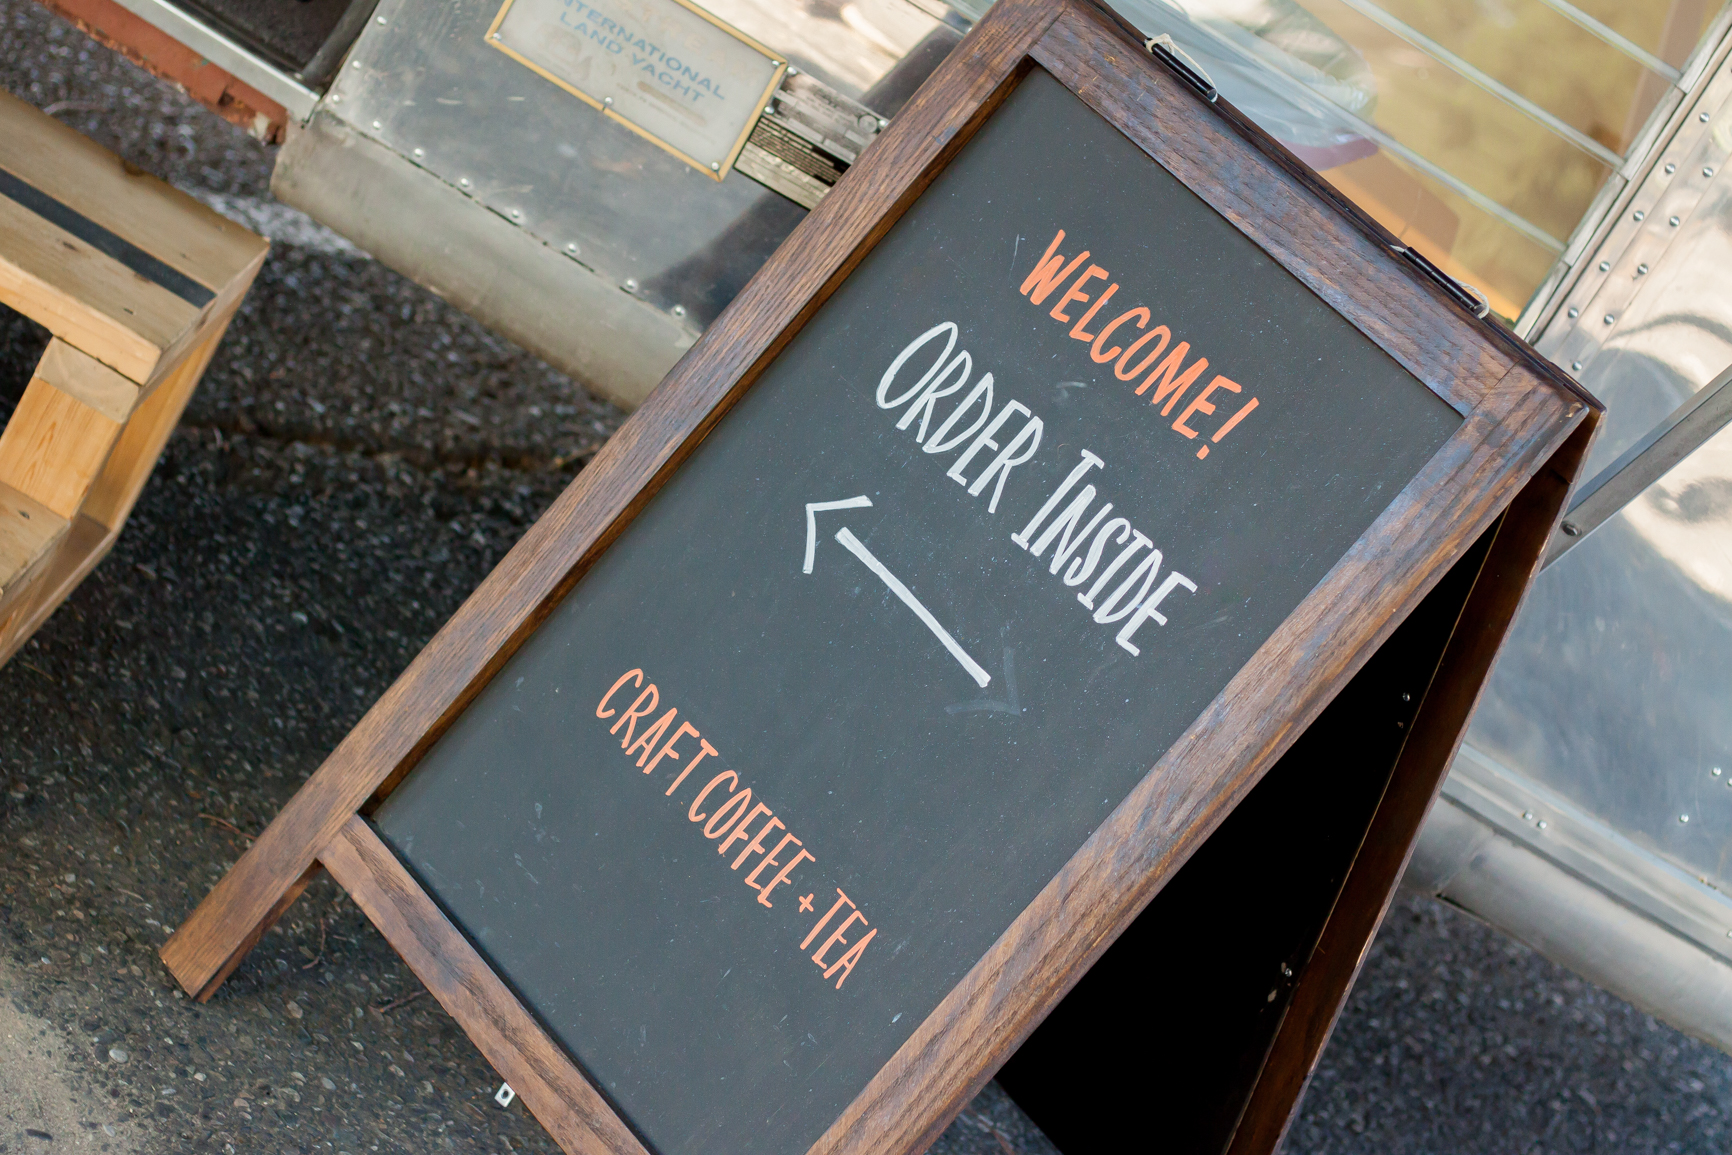 INTERNATIONAL
LAND YACHT
WELCOME!
ORDER INSIDE
CRAFT COFFEE + TEA